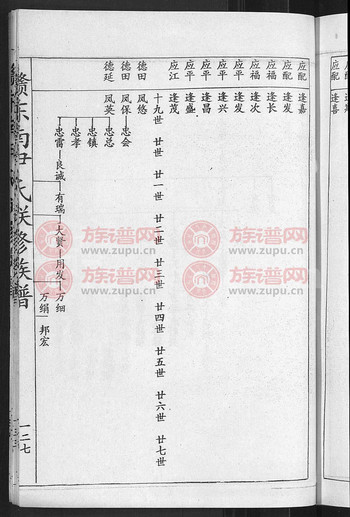 应配 逢喜
应配 逢嘉
应配 逢发
应福 逢次
应福 逢发
应长 逢兴
应平 逢昌
应平 逢盛
应江 逢茂
十九世 廿世 廿一世 廿二世 廿三世 廿四世 廿五世 廿六世 廿七世
德田 凤悠
德田 凤保 忠会
德延 凤英 忠总
忠镇
忠孝
忠雷 良诚 有瑞 大贤 用发 万细
万绢 邦宏
赣东南尹氏联修族谱
一二七
族谱网
www.zupu.cn
族谱网
www.zupu.cn
族谱网
www.zupu.cn
族谱网
www.zupu.cn